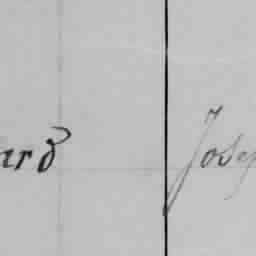 ard Josep